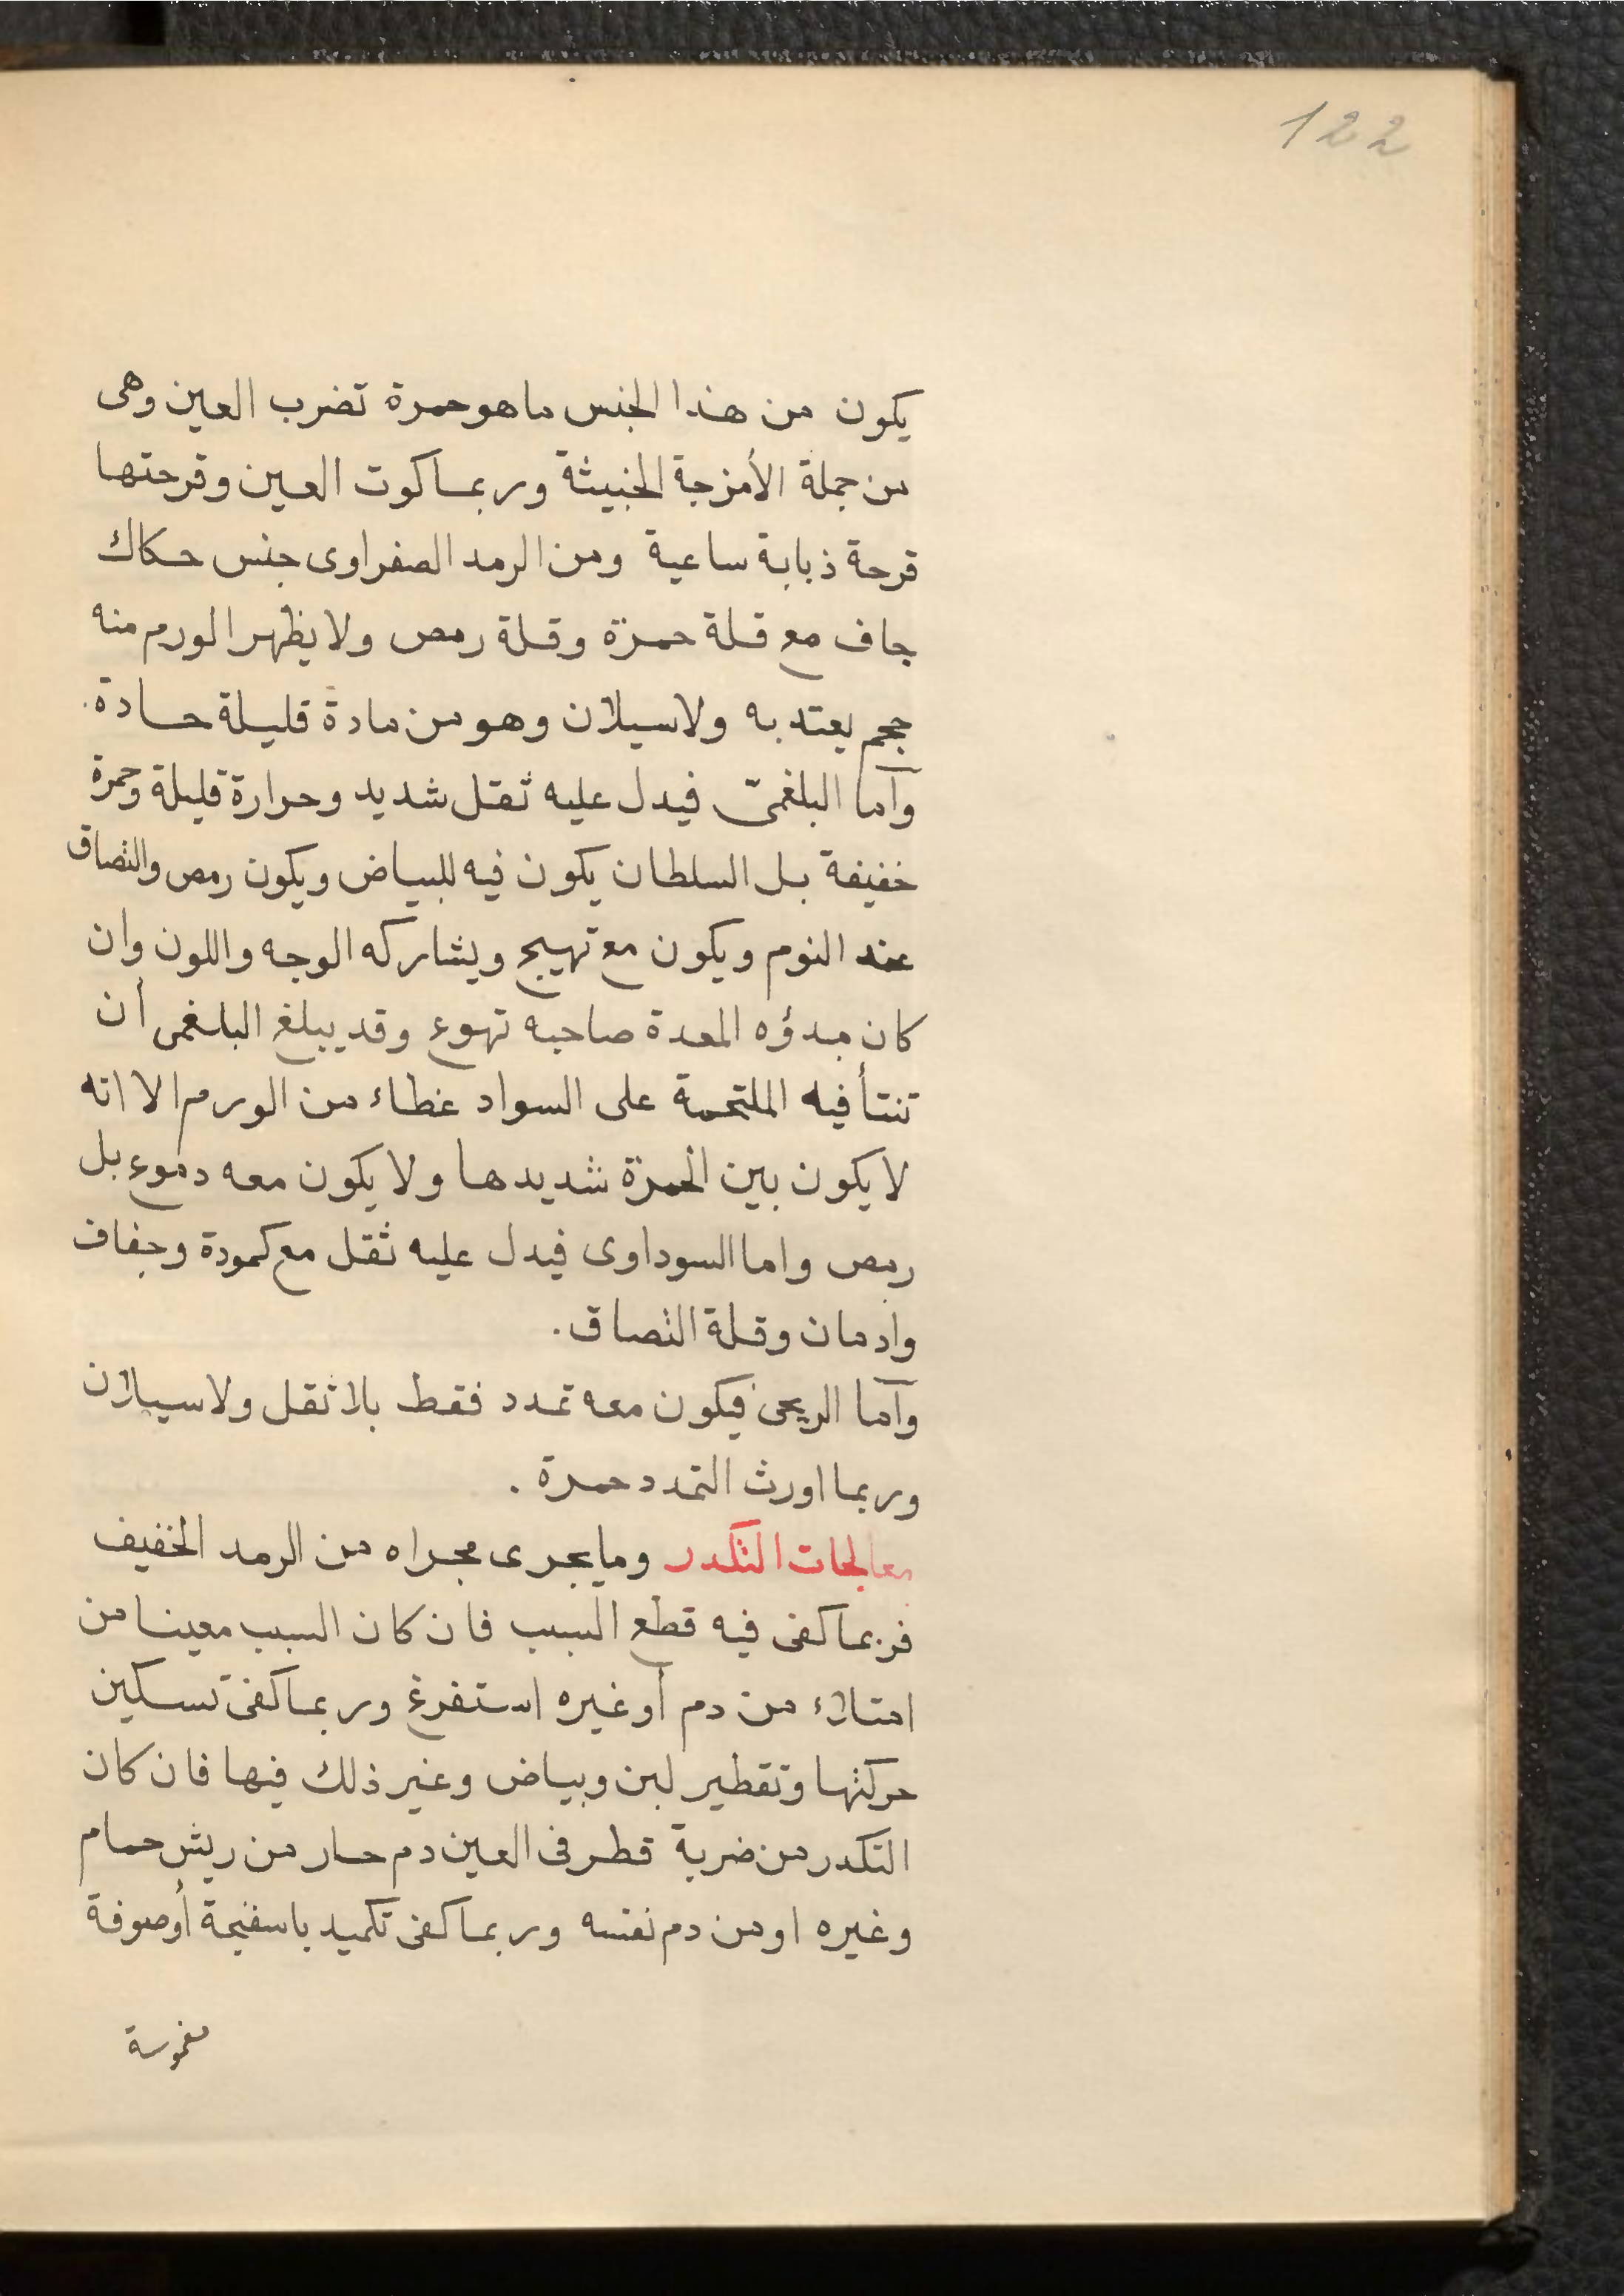 122
يكون من هذا الجنس ما هو حمرة تضرب العين وهى
من جملة الأمزجة الخبيثة وربما كوت العين وقرحتها
قرحة ذبابة ساعية ومن الرمد الصفراوى جنس حكاك
جاف مع قلة حمرة وقلة رمص ولا يظهر الورم منه
حجم يعتد به ولا سيلان وهو من مادة قليلة حادة.
وأما البلغمىّ فيدل عليه ثقل شديد وحرارة قليلة وحمرة
خفيفة بل السلطان يكون فيه للبياض ويكون رمص والتصاق
عند النوم ويكون مع تهيج ويشاركه الوجه واللون وان
كان مبدؤه المعدة صاحبه تهوع وقد يبلغ البلغمى أن
تنتأ فيه الملتحمة على السواد غطاء من الورم الا انه
لا يكون بين الحمرة شديدها ولا يكون معه دموع بل
رمص واما السوداوى فيدل عليه ثقل مع كمودة وجفاف
وادمان وقلة التصاق.
وأما الريحى فيكون معه تمدد فقط بلا ثقل ولا سيلان
وربما اورث التمدد حمرة.
معالجات التكدر وما يجرى مجراه من الرمد الخفيف
فربما كفى فيه قطع السبب فان كان السبب معينا من
امتلاء من دم أو غيره استفرغ وربما كفى تسكين
حركتها وتقطير لبن وبياض وغير ذلك فيها فان كان
التكدر من ضربة قطر فى العين دم حار من ريش حمام
وغيره او من دم نفسه وربما كفى تكميد باسفنجة أو صوفة
مغموسة